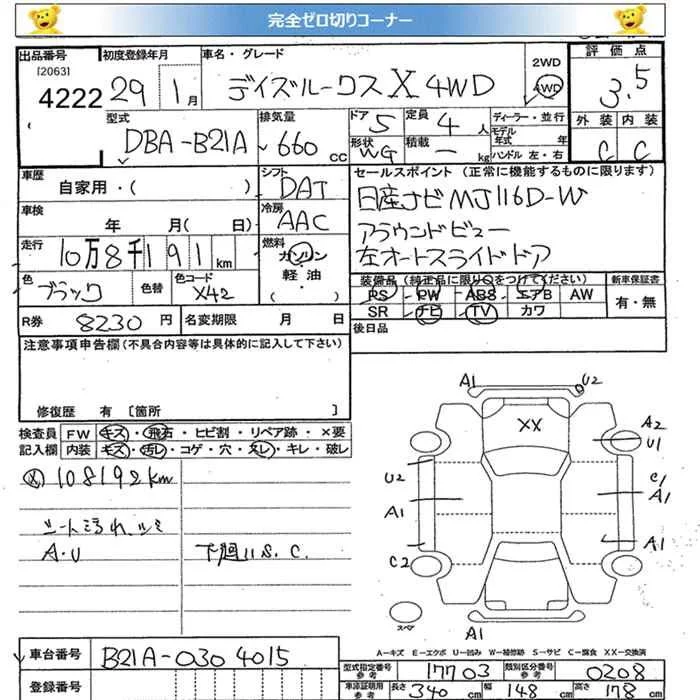 完全ゼロ切りコーナー
出品番号 初度登録年月 車名・グレード 2WD 評価点
[2063] 4222 29年 1月 デイズルークス X 4WD 4WD 3.5
型式 排気量 ドア 定員 ディーラー・並行 外装 内装
DBA-B21A 660 CC 5 4人 モデル年式 年
形状 WG 積載 — kg ハンドル 左・右 C C
車歴 シフト セールスポイント (正常に機能するものに限ります)
自家用・( ) DAT 日産ナビMJ116D-W
車検 冷房 アラウンドビュー
年 月( 日) AAC 左オートスライドドア
走行 燃料
10万8千191km ガソリン
軽油
( )
色 色替 色コード 装備品 (純正品に限り○をつけてください) 新車保証書
ブラック X42 PS PW ABS エアB AW 有・無
SR ナビ TV カワ
R券 8230円 名変期限 月 日 後日品
注意事項申告欄(不具合内容等は具体的に記入して下さい)
修復歴 有 [箇所 ]
検査員 FW キズ・飛石・ヒビ割・リペア跡・×要
記入欄 内装 キズ・汚レ・コゲ・穴・スレ・キレ・破レ
108192km
シート汚れ、シミ
A・U 下廻りS.C.
A1 U2
XX
A2
U1
U2 C1
A1
A1
A1
C2
スペア
A1
A-キズ E-エクボ U-凹み W-補修跡 S-サビ C-腐食 XX-交換済
車台番号 B21A-0304015
型式指定番号 参考 17703 類別区分番号 参考 0208
登録番号
車庫証明用 参考 長さ 340cm 幅 148cm 高さ 178cm